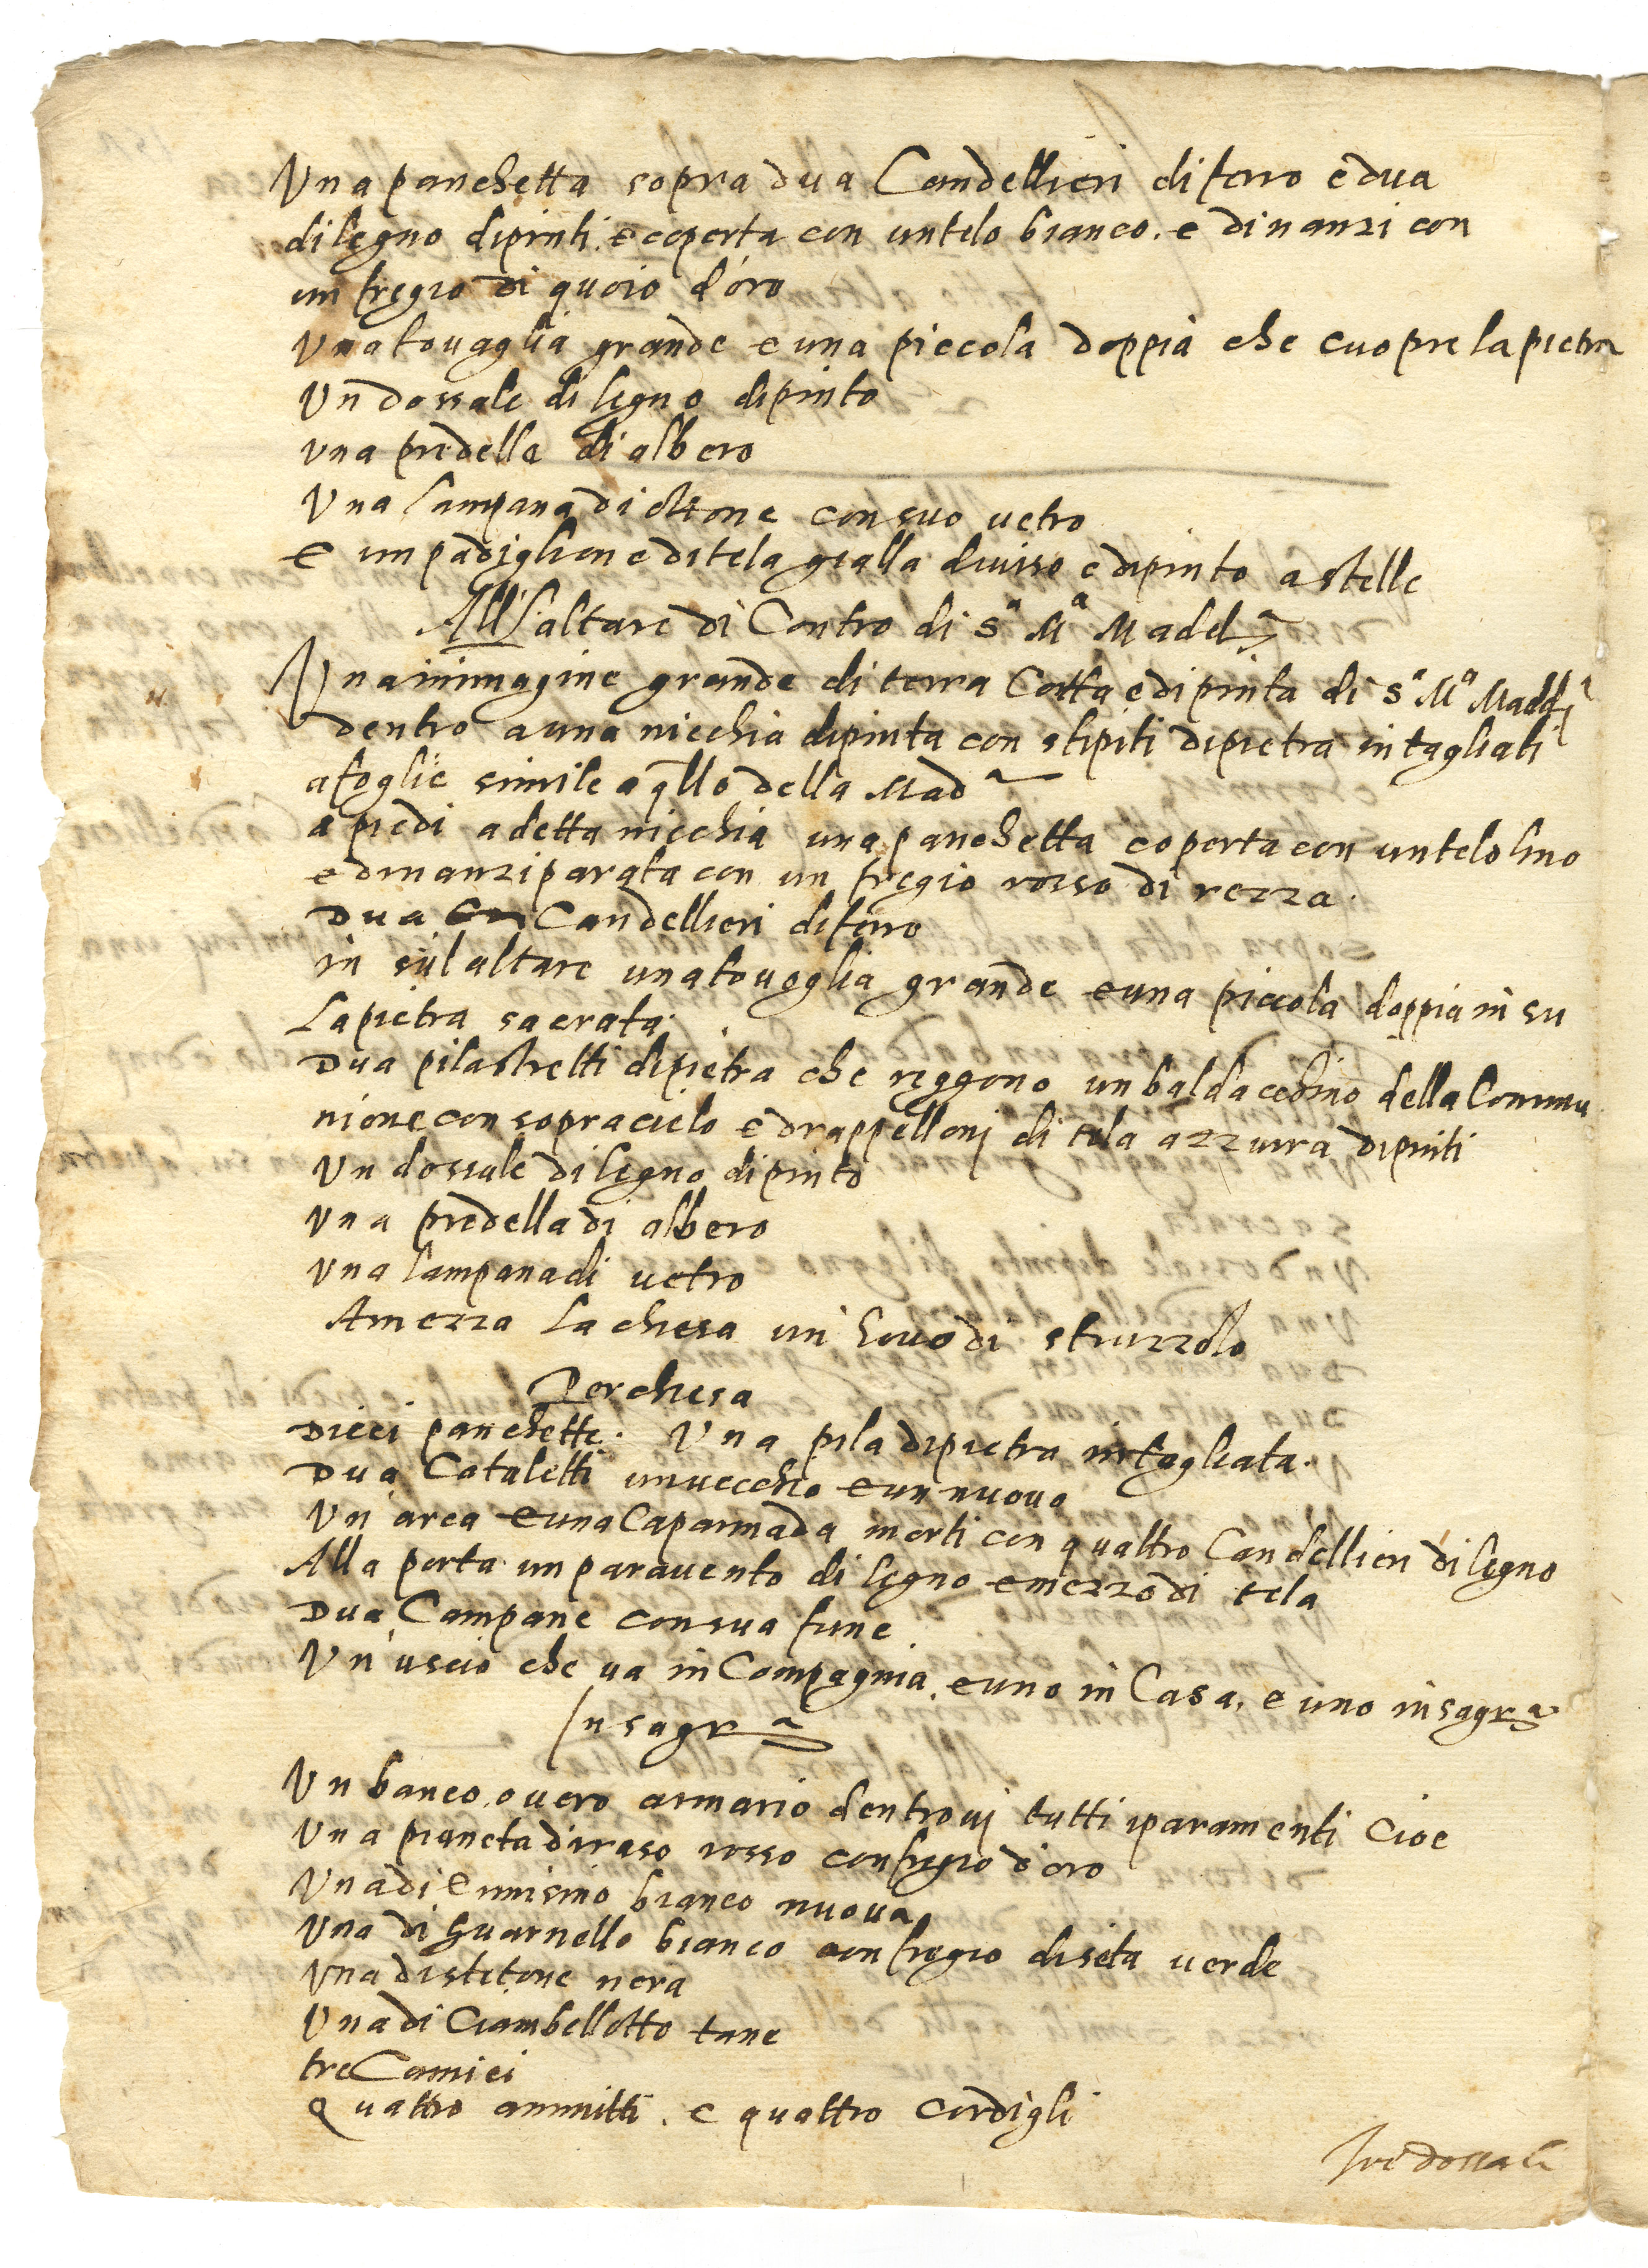 Una panchetta sopra dua Candellieri di ferro e dua
di legno dipinti. e coperta con un telo bianco. e dinanzi con
un fregio di quoio d'oro
Una tovaglia grande e una piccola doppia che cuopre la pietra
Un dossale di legno dipinto
una predella di albero
Una lampana di ottone con suo vetro
e un padiglione di tela gialla e dipinto a stelle
All'altare di Contro di S.a M.a Madel.a
Una immagine grande di terra Cotta e dipinta di S.a M.a Madd.a
dentro a una nicchia dipinta con stipiti di pietra intagliati
a foglie simile a qllo della Mad.a
a piedi a detta nicchia una panchetta coperta con un telo lino
e dinanzi parata con un fregio rosso di rezza.
Dua Candellieri di ferro
in sul altare una tovaglia grande e una piccola doppia in su
la pietra sacrata.
Dua pilastretti di pietra che reggono un baldacchino della Commu
nione con sopracielo e drappelloni di tela azzurra dipinti
Un dossale di legno dipinto
Una predella di albero
Una lampana di vetro
A mezza la chiesa un' hovo di struzzolo
Per chiesa
Dieci panchette. Una pila di pietra intagliata.
Dua Cataletti un vecchio e un nuovo
Un' arca e una Capanna da morti con quattro Candellieri di legno
Alla porta un paravento di legno e mezzo di tela
Dua Campane con sua fune
Un' uscio che va in Compagnia. e uno in Casa. e uno in sagr.a
In sagr.a
Un banco overo armario dentrovi tutti i paramenti Cioe
Una pianeta di raso rosso con fregio d'oro
Una di ermisino bianco nuova
Una di guarnello bianco con fregio di seta verde
Una di stetone nera
Una di Ciambellotto tane
tre Camici
Quattro ammitti. e quattro cordigli
Tre dossali